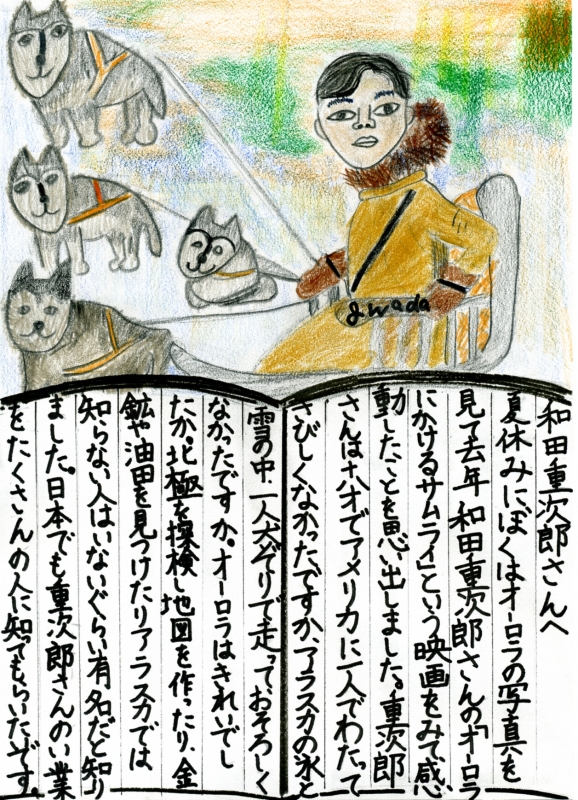 J.wada
和田重次郎さんへ
夏休みにぼくはオーロラの写真を
見て去年和田重次郎さんの「オーロラ
にかけるサムライ」という映画をみて感
動したことを思い出しました。重次郎
さんは十八才でアメリカに一人でわたって
さびしくなかったですか、アラスカの氷と
雪の中、一人犬ぞりで走って、おそろしく
なかったですか。オーロラはきれいでし
たか。北極を探検し地図を作ったり、金
鉱や油田を見つけたりアラスカでは
知らない人はいないぐらい有名だと知り
ました。日本でも重次郎さんのい業
をたくさんの人に知ってもらいたいです。